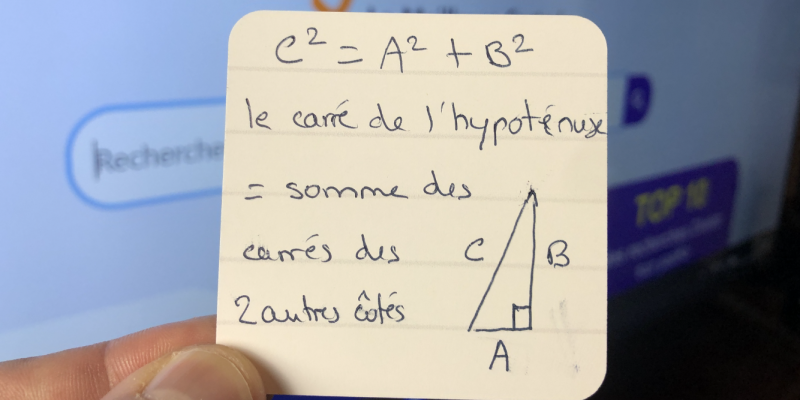 C² = A² + B²
le carré de l'hypoténuse
= somme des
carrés des
2 autres côtés
C
B
A
Recherche
TOP 10